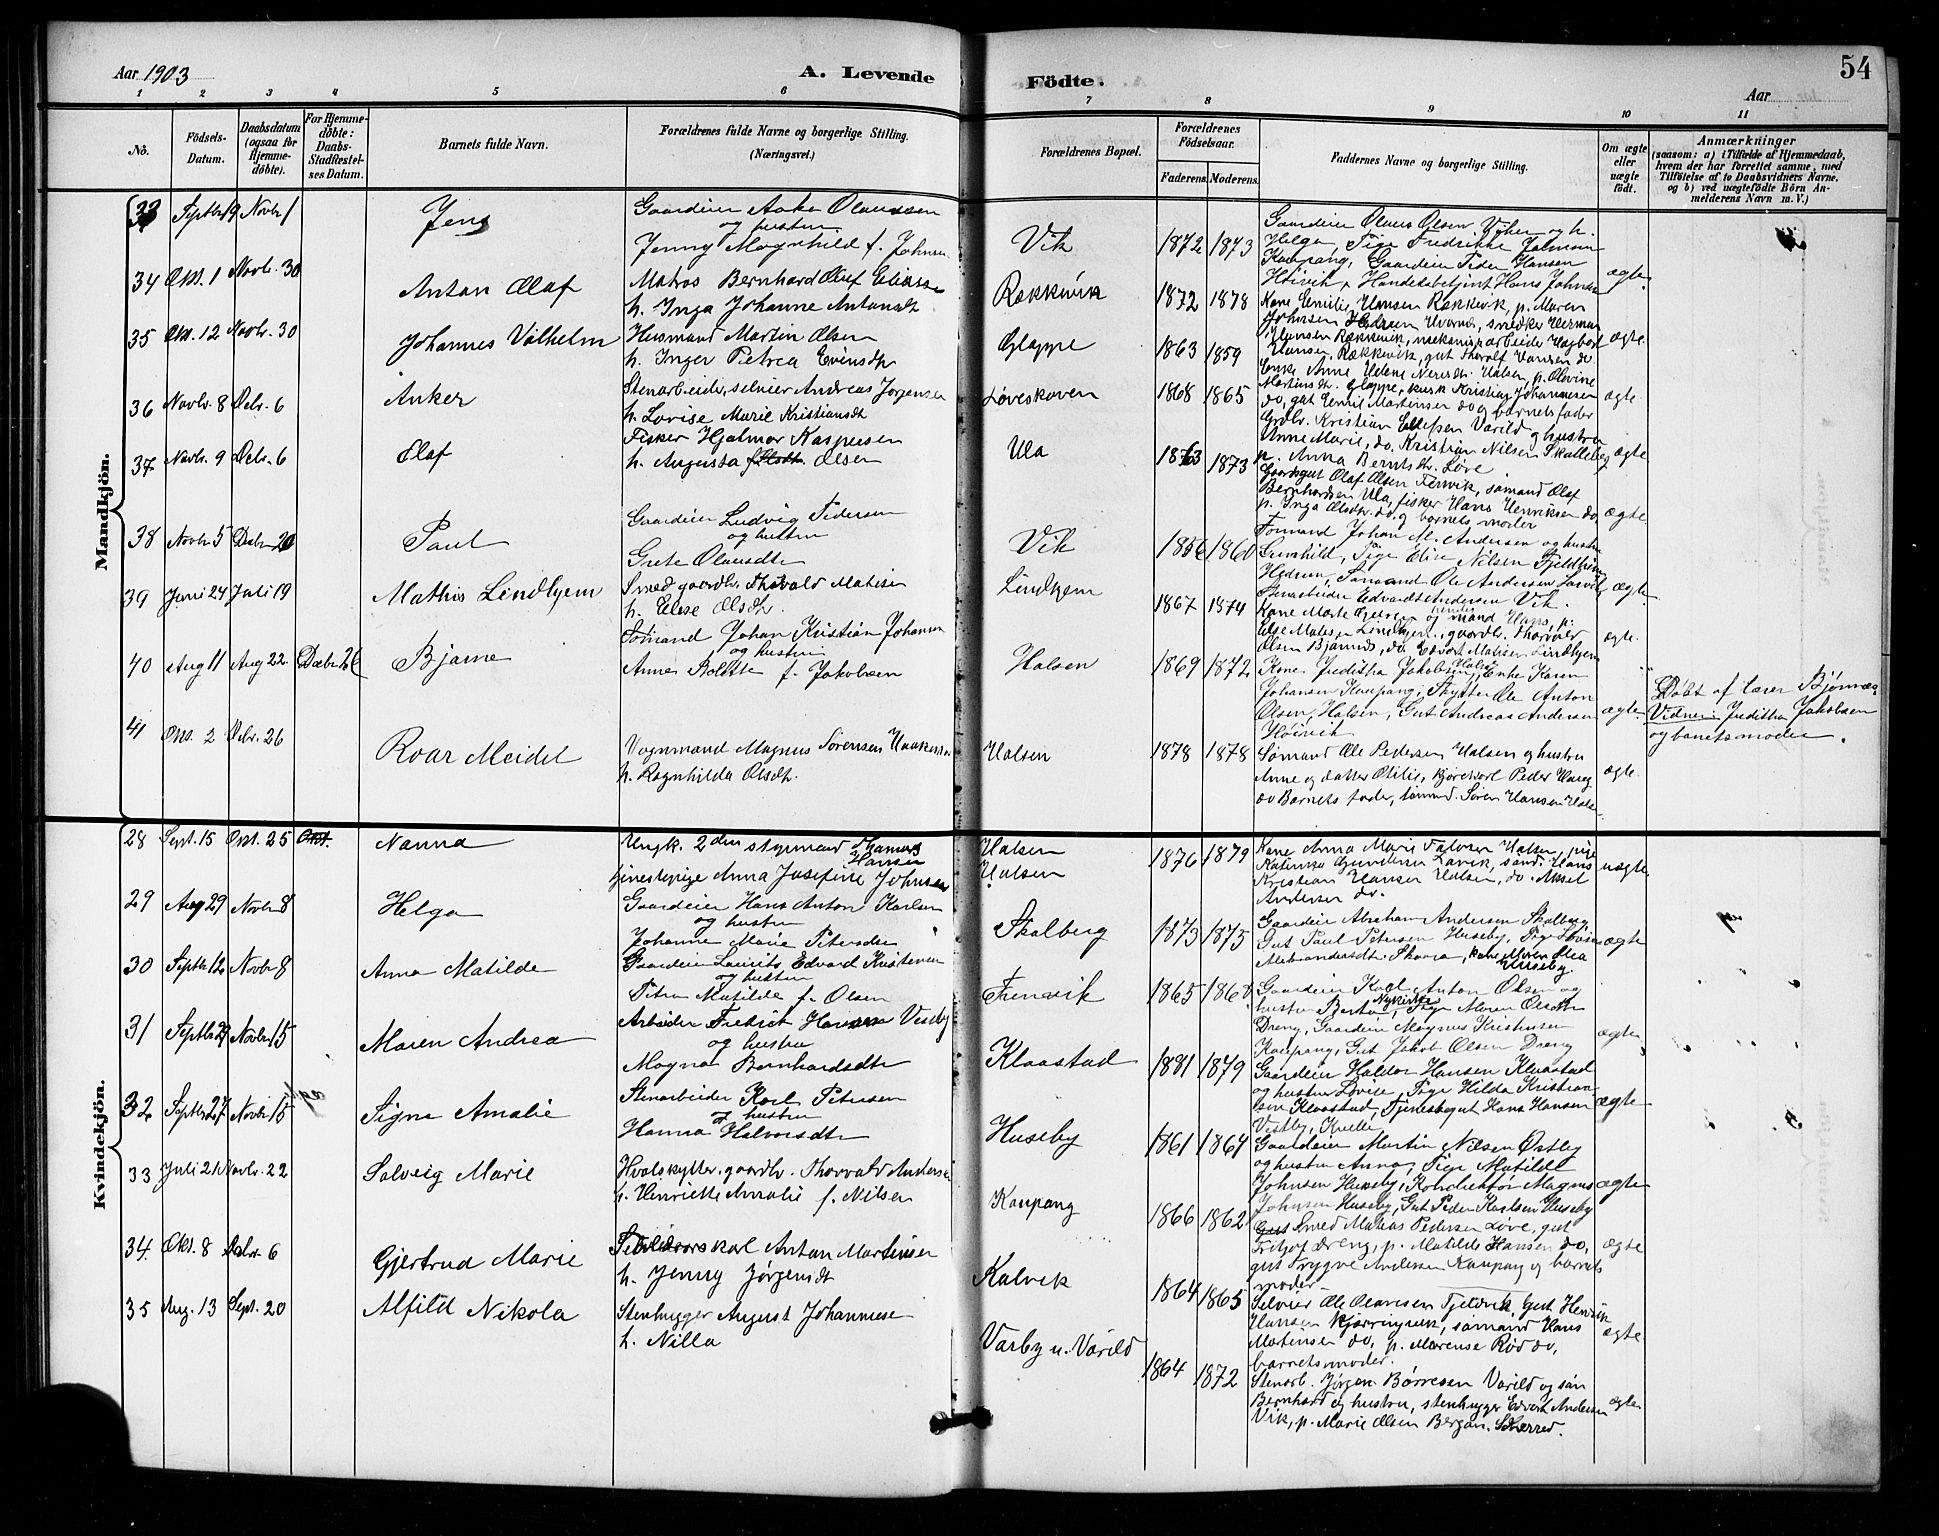 Aar 1903
A. Levende
Födte.
54
Aar
1 2 3 4 5 6 7 8 9 10 11
No.
Födsels-Datum.
Daabsdatum (ogsaa for Hjemmedöbte).
For Hjemmedöbte: Daabs-Stadfæstelses Datum.
Barnets fulde Navn.
Forældrenes fulde Navne og borgerlige Stilling. (Næringsvei.)
Forældrenes Bopæl.
Forældrenes Födselsaar.
Faderens. Moderens.
Faddernes Navne og borgerlige Stilling.
Om ægte eller uægte födt.
Anmærkninger
(saasom: a) i Tilfælde af Hjemmedaab, hvem der har forrettet samme, med Tilföielse af to Daabsvidners Navne, og b) ved uægtefödte Börn Anmelderens Navn m. V.)
Mandkjön.
33 Septbr 19 Novbr 1 Jens
Gaardeier Anker Olaussen
og hustru
Jenny Magnhild f. Johnsen
Vik 1872 1873
Gaardeier Olaus Olsen Viken og h.
Helga, Pige Fredrikke Jalmsen
Kaupang, Gaardeier Peder Hansen
Høivik, Handelsbetjent Hans Johnsen
ægte.
34 Okt. 1 Novbr. 30 Anton Olaf
Matros Bernhard Olaf Eliassen
h. Inga Johanne Antonsdt
Rækkevik 1872 1878
Kone Emilie Hansen Rækkevik, p. Maren
Hansen Rækkevik, mekanisk arbeider Hagbart
Hansen, Rækkevik, gut Thorolf Hansen do.
ægte
35 Okt. 12 Novbr. 30 Johannes Vilhelm
Husmand Martin Olsen
h. Inger Petrea Evensdtr
Gloppe 1863 1859
Enke Anne Helene Nersdtr. Halsen, p. Olovine
Martinsdtr. Gloppe, kusk Kristian Johannesen
do, gut Emil Martinsen do og barnets fader
ægte.
36 Novbr. 8 Debr. 6 Anker
Stenarbeider, selveier Andreas Jørgensen
h. Lovise Marie Kristiansdt
Løveskoven 1868 1865
Grdbr. Kristian Ellefsen Varild og hustru
Anne Marie, do. Kristian Nilsen Skalleberg
p. Anna Berntsdtr. Løve
ægte
37 Novbr. 9 Debr. 6 Olaf
Fisker Hjalmar Kaspersen
h. Augusta f. Olsen
Ula 1863 1873
Gaardsgut Olaf Olsen Fervik, sømand Olaf
Bernhardsen Ula, fisker Hans Henriksen do,
p. Inga Olsdtr. do. og barnets moder
ægte
38 Novbr 5 Decbr 20 Paul
Gaardeier Ludvig Pedersen
og hustru
Grete Olausdtr
Vik 1856 1860
Formand Johan M. Andersen og hustru
Gunhild, Pige Elise Nilsen Fjeldhim
Hedrum, Sømand Ole Andersen Larvik,
Stenarbeider Edvard Andersen Vik.
ægte.
39 Juni 24 Juli 19 Mathis Lindhjem
Smed gaardbr. Thorvald Matisen
h. Elise Olsdtr.
Lindhjem 1867 1874
Else Matisen Lindhjem, gaardbr. Thorvald
Olsen Bjønnes, do. Edvart Matisen Lindhjem
ægte.
40 Aug 11 Aug 22. Decbr 26 Bjarne
Sømand Johan Kristian Johansen
og hustru
Anne Bolette f. Jakobsen
Halsen 1869 1872
Kone Jreditha Jakobsen Halsen, Enke Karen
Johansen Kaupang, Skytter Ole Anton
Olsen, Halsen, Gut Andreas Andersen
Høivik
ægte.
Døbt af lærer Bjønnes
Vidner: Jreditha Jakobsen
og barnets moder.
41 Okt. 2 Debr. 26 Roar Meidel
Vognmand Magnus Sørensen Haakensen
h. Ragnhilda Olsdtr.
Halsen 1878 1878
Sømand Ole Pedersen Halsen og hustru
Anne og datter Otilie, kjørekarl Peder Haug
do Barnets fader, sømand Søren Hansen Halsen
ægte.
Kvindekjön.
28 Sept. 15 Okt. 25 Okt. Nanna
Ungk. 2den styrmand Thomas Hansen
tjenestepige Anna Josefine Johnsen
Halsen
Halsen
1876 1879
Kone Anna Marie Halvorsen Halsen, pige
Katinka Gundersen Larvik, sømd. Hans
Kristian Hansen Halsen, do. Aksel
Andersen do.
uægte
29 Aug 29 Novbr 8 Helga
Gaardeier Hans Anton Karlsen
og hustru
Johanne Marie Petersdtr
Skalberg 1873 1875
Gaardeier Abraham Andersen Skalberg,
Gut Paul Petersen Huseby, Pige Lovise
Aleksandersdt. Skaara, Kone Maren Olea
Huseby
ægte
30 Septbr 12 Novbr 8 Anna Matilde
Gaardeier Laurits Edvard Kristensen
og hustru
Petra Matilde f. Olsen
Fremvik 1865 1868
Gaardeier Karl Anton Olsen og
hustru Berta, Pige Maren Olsdtr
Dreng, Gaardeier Magnus Kristensen
Kaupang, Gut Jakob Olsen Dreng
ægte
31 Septbr 27 Novbr 15 Maren Andrea
Arbeider Fredrik Hansen Vestby
og hustru
Magna Bernhardsdtr
Klaastad 1881 1879
Gaardeier Haldor Hansen Klaastad
og hustru Lovise, Pige Hilda Kristiansen
Klaastad, Tjenestegut Hans Hansen
Vestby, Kvelle
ægte
32 Septbr 27 Novbr 15 Signe Amalie
Stenarbeider Karl Petersen
og hustru
Hanna Halvorsdtr
Huseby 1861 1864
Gaardeier Martin Nilsen Østby
og hustru Anna, Pige Matilde
Johnsen Huseby, Konduktør Magnus
Johnsen Huseby, Gut Peder Karlsen Huseby
ægte
33 Juli 21 Novbr. 22 Solveig Marie
Hvalskytter, gaardbr. Thorvald Andersen
h. Henriette Amalie f. Nilsen
Kaupang 1866 1862
Gut Smed Matias Pedersen Løve, gut
Fritjof Dreng, p. Matilde Hansen do,
gut Trygve Andersen Kaupang og barnets
moder
ægte
34. Okt. 8 Debr. 6 Gjertrud Marie
Anton Martinsen
h. Jenny Jørgensdt
Kalvik 1864 1865
Selveier Ole Olavesen Fjeldvik, Gut Henrik
Hansen Kjerringvik, sømand Hans
Martinsen do, p. Marense Rød do,
barnets moder.
ægte
35 Aug. 13 Sept. 20 Alfild Nikola
Stenhugger August Johannesen
h. Nilla
Varby u. Varild 1864 1872
Stenarb. Jørgen Børresen Varild og søn
Bernhard og hustru, stenhugger Edvart Andersen
Vik, p. Marie Olsen Bergan. Skjerred.
ægte